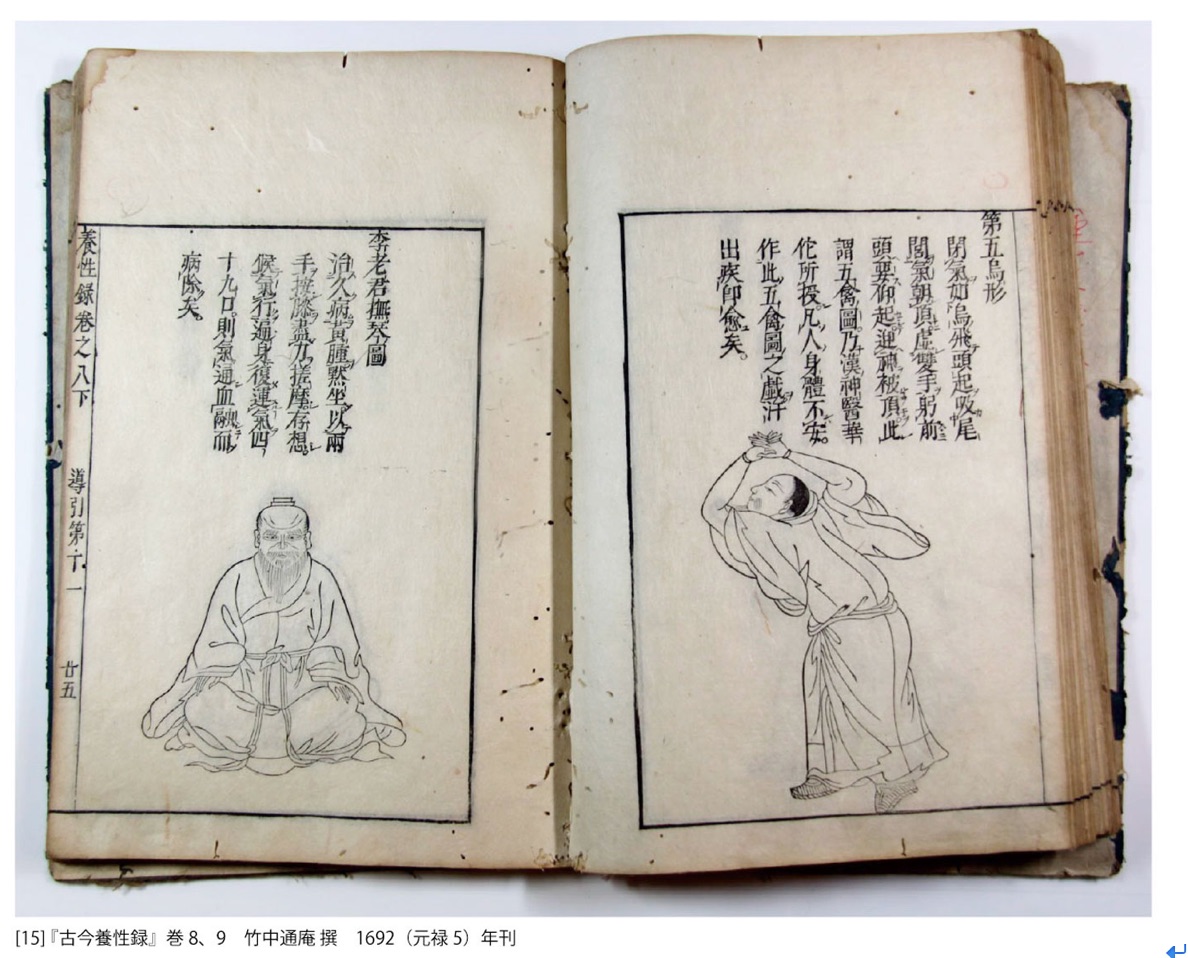 第五鳥形
閉氣如鳥飛頭起吸尾
閭氣朝頂虛雙手躬前
頭要仰起迎神被頂此
謂五禽圖乃漢神醫華
佗所授凡人身體不安。
作此五禽圖之戲汗
出疾即愈矣。
李老君撫琴圖
治久病黃腫默坐以兩
手按膝盡力搓摩存想。
候氣行遍身復運氣四
十九口。則氣通血融而
病除矣。
養性録卷之八下 導引第十一 廿五
[15]『古今養性録』巻 8、9　竹中通庵 撰　1692（元禄 5）年刊